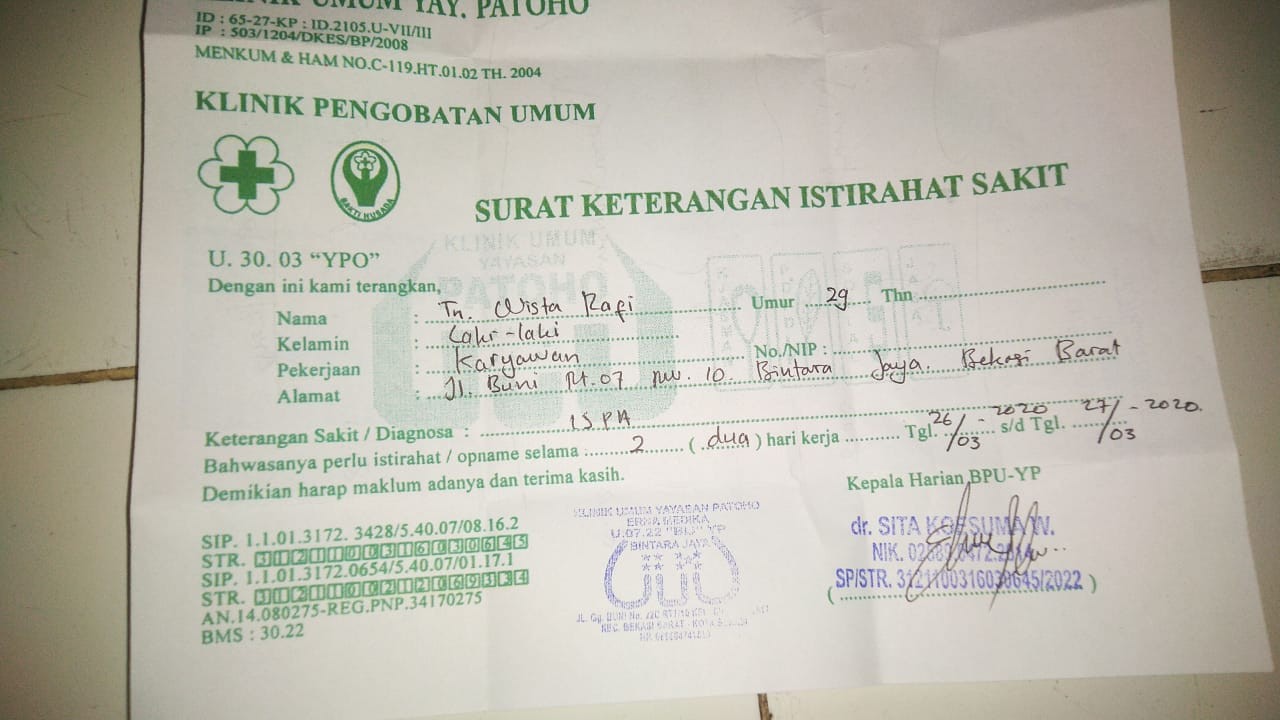 KLINIK UMUM YAY. PATOHO
ID : 65-27-KP : ID.2105.U-VII/III
IP : 503/1204/DKES/BP/2008
MENKUM & HAM NO.C-119.HT.01.02 TH. 2004
KLINIK PENGOBATAN UMUM
BAKTI HUSADA
SURAT KETERANGAN ISTIRAHAT SAKIT
KLINIK UMUM
YAYASAN
PATOHO
U. 30. 03 “YPO”
Dengan ini kami terangkan,
Nama : Tn. Wista Rafi Umur 29 Thn
Kelamin : Laki-laki
Pekerjaan : Karyawan No./NIP :
Alamat : Jl. Buni Rt.07 rw. 10 Bintara Jaya. Bekasi Barat
Keterangan Sakit / Diagnosa : ISPA
Bahwasanya perlu istirahat / opname selama : 2 ( dua ) hari kerja Tgl. 26/03 - 2020 s/d Tgl. 27/03 - 2020.
Demikian harap maklum adanya dan terima kasih.
Kepala Harian BPU-YP
SIP. 1.1.01.3172. 3428/5.40.07/08.16.2
STR. 3121100316030645
SIP. 1.1.01.3172.0654/5.40.07/01.17.1
STR.
AN.14.080275-REG.PNP.34170275
BMS : 30.22
KLINIK UMUM YAYASAN PATOHO
ERNA MEDIKA
U.07.22 "BIJ" YP
BINTARA JAYA
dr. SITA KOESUMA W.
NIK.
SP/STR. 3121100316030645/2022